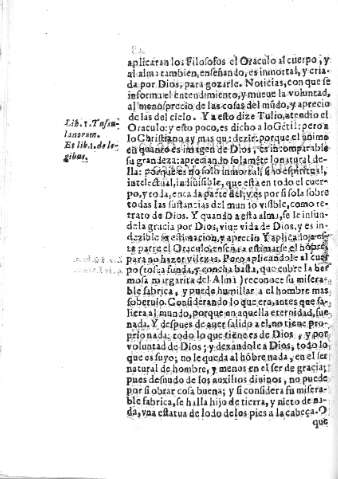 aplicaran los Filosofos el Oraculo al cuerpo; y
al alma tambien, enseñando, es inmortal, y cria-
da por Dios, para gozarle. Noticias, con que se
informa el entendimiento, y mueve la voluntad,
al menosprecio de las cosas del mũdo, y aprecio
de las del cielo. Y a esto dize Tulio, atendio el
Oraculo: y esto poco, es dicho a lo Gẽtil: pero a
lo Christiano ay mas que dezir: porque el animo
en quanto es imagen de Dios, es incomparable
su grandeza: apreciando solamẽte lo natural de-
lla: porque es no solo inmortal, sino espiritual,
intelectual, indiuisible, que esta en todo el cuer-
po, y toda en cada parte del; y es por si sola sobre
todas las sustancias del mundo visible, como re-
trato de Dios. Y quando a esta alma, se le infun-
de la gracia por Dios, viue vida de Dios, y es in-
dezible su estimacion, y aprecio. Y aplicado a es-
ta parte el Oraculo, enseña estimarse el hõbre,
para no hazer vilezas. Pero aplicandole al cuer-
po (tosca funda, y concha basta, que cubre la her
mosa margarita del Alma) reconoce su misera-
ble fabrica, y puede humillar a el hombre mas
soberuio. Considerando lo que era, antes que sa-
liera al mundo, porque en aquella eternidad, fue
nada. Y despues de auer salido a el, no tiene pro-
prio nada: todo lo que tiene es de Dios, y por
voluntad de Dios; y dexandole a Dios, todo lo
que es suyo; no le queda al hõbre nada, en el ser
natural de hombre, y menos en el ser de gracia;
pues desnudo de los auxilios diuinos, no puede
por si obrar cosa buena; y si considera su misera-
ble fabrica, se halla hijo de tierra, y nieto de na-
da, vna estatua de lodo de los pies a la cabeça. O
que
Lib. 1. Tuscu-
lanarum.
Et lib. 1. de le-
gibus.